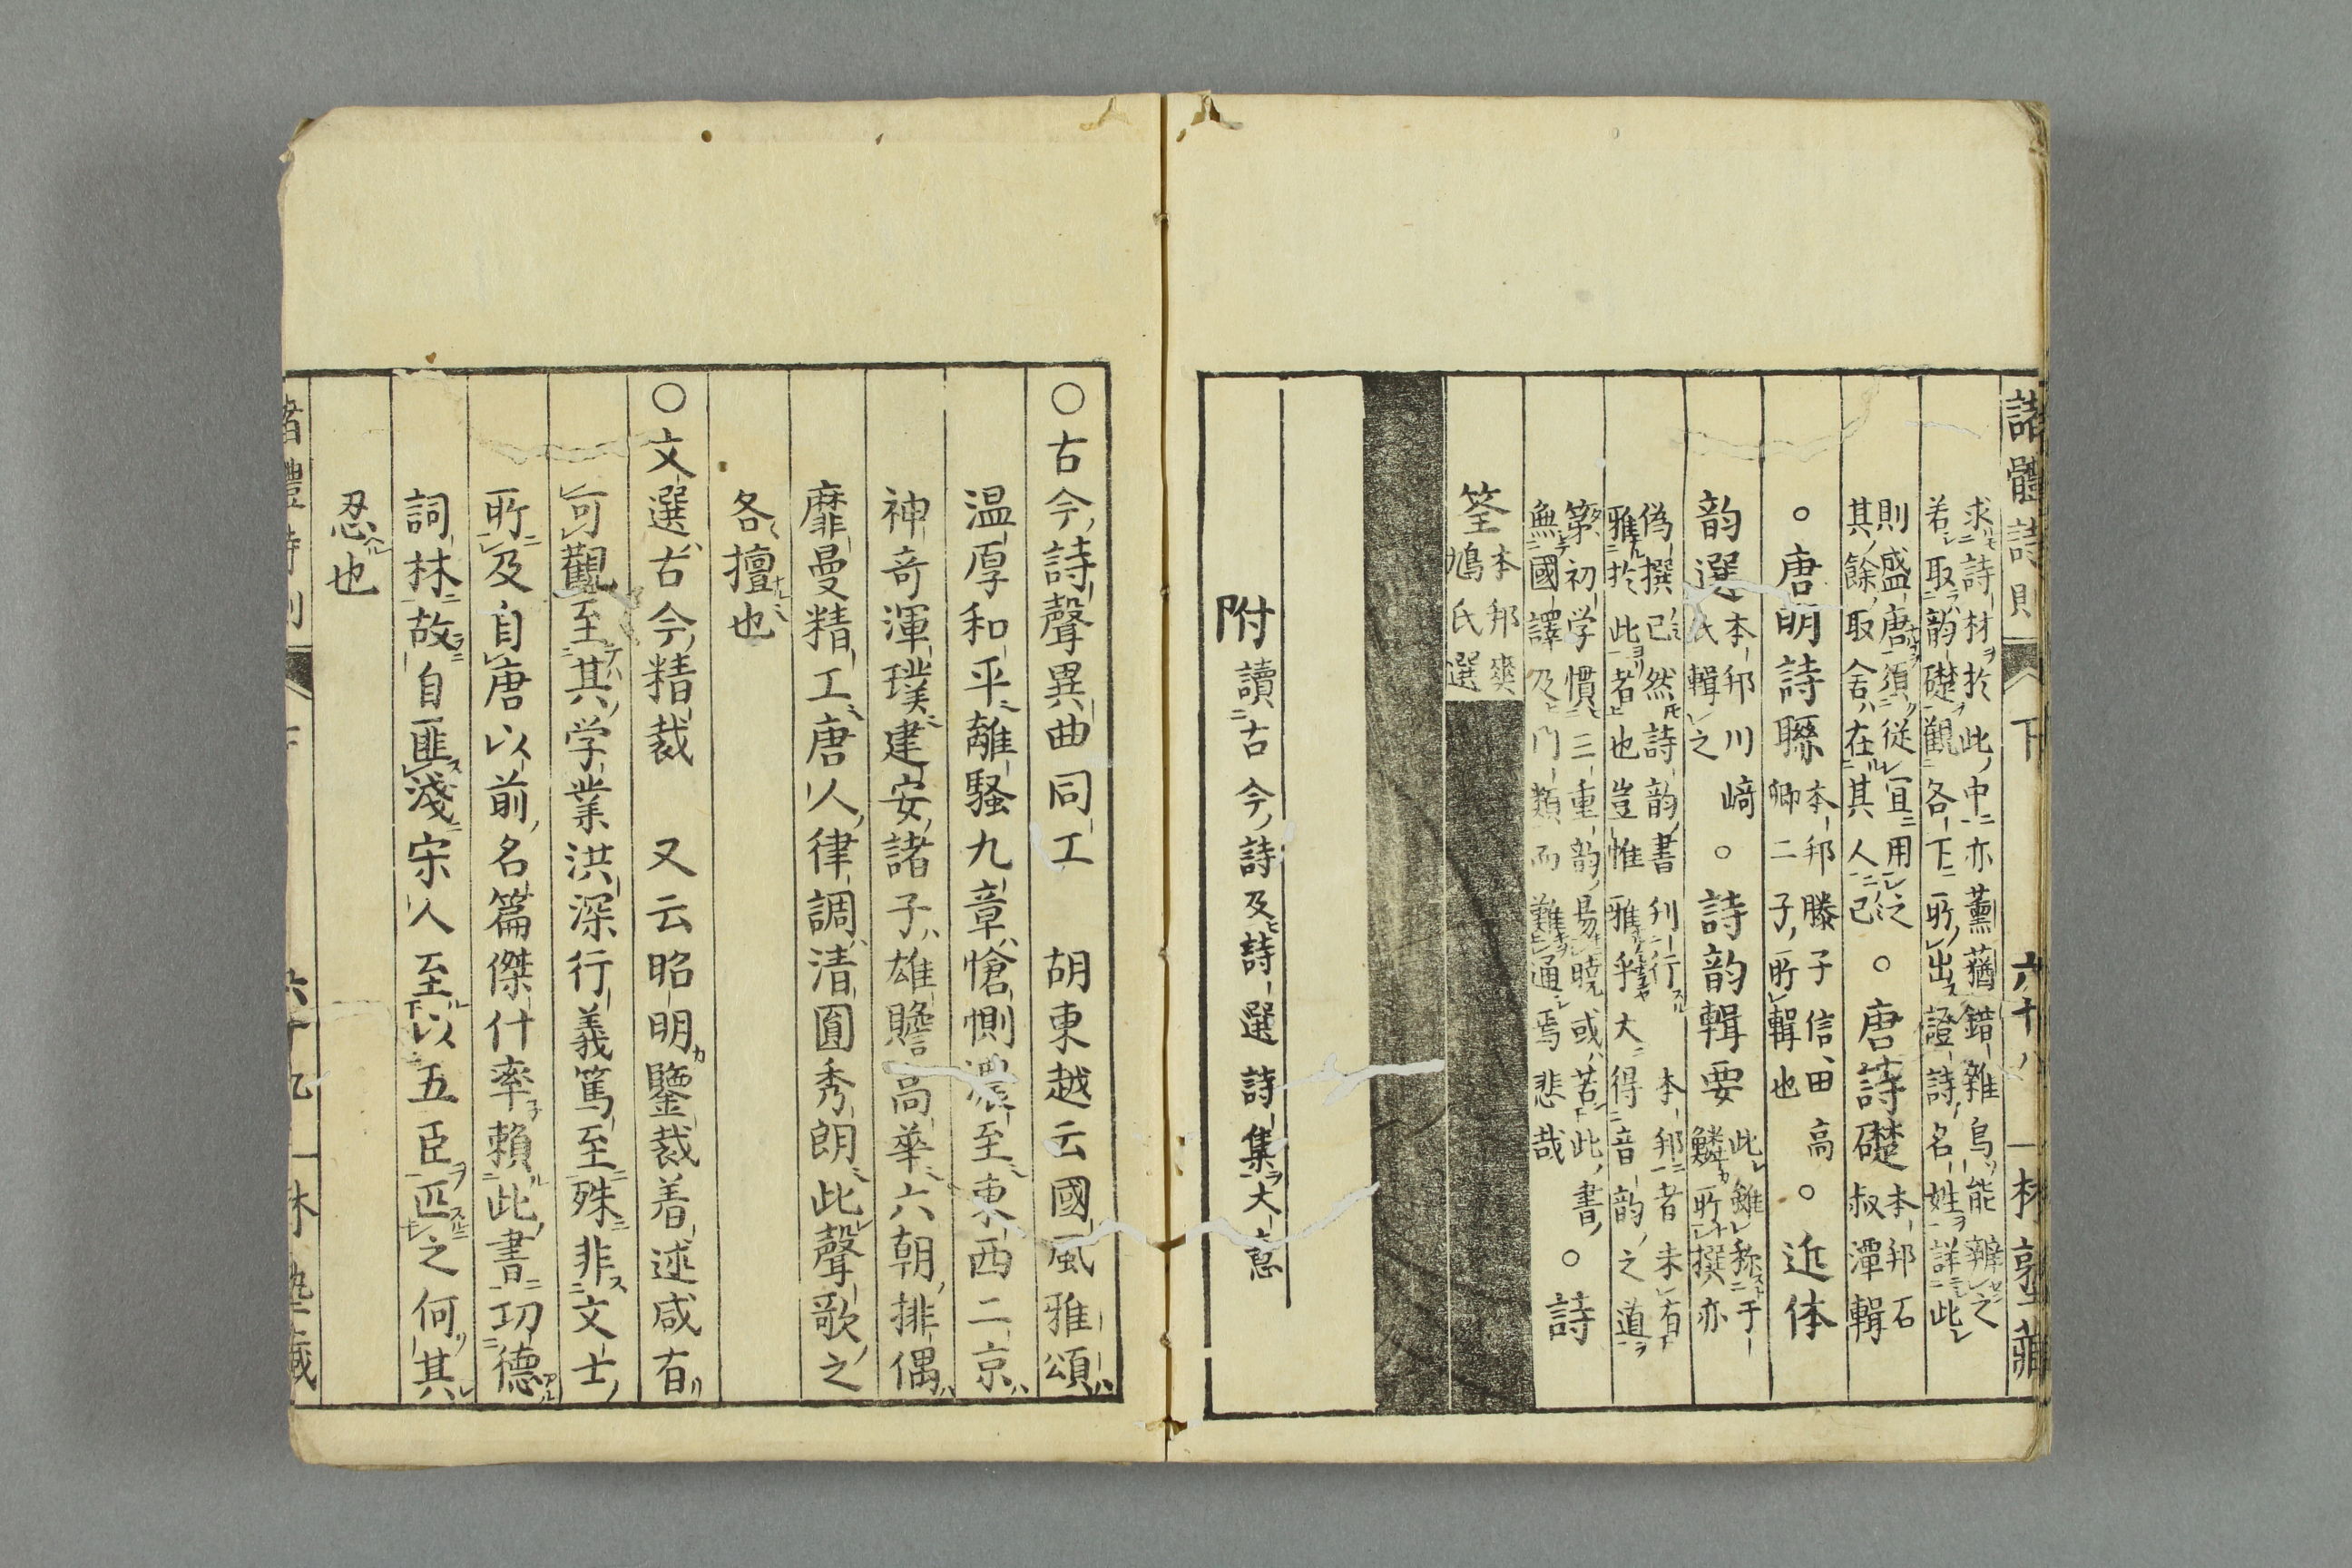 諸體詩則 下 六十八 一 林塾藏
求詩材於此中亦薰蕕錯雜烏能辨之
若取韵礎觀各下所出證詩名姓詳此
則盛唐須從宜用之
其餘取舍在其人已
○唐詩礎
本邦石
叔潭輯
○唐明詩聯
本邦滕子信田高
卿二子所輯也
○近体
韵選
本邦川﨑
氏輯之
○詩韵輯要
此雖称于
鱗所撰亦
偽撰已然詩韵書刋行本邦者未有
雅於此者也豈惟雅乎大得音韵之道
第初学慣三重韵易曉或苦此書
無國譯及門類而難通焉悲哉
○詩
筌
本邦爽
鳩氏選
附讀古今詩及詩選詩集大意
○古今詩聲異曲同工 胡東越云國風雅頌
温厚和平離騷九章愴惻濃至東西二京
神奇渾璞建安諸子雄贍高華六朝排偶
靡曼精工唐人律調清圓秀朗此聲歌之
各擅也
○文選古今精裁 又云昭明鑒裁着述咸有
可觀至其学業洪深行義篤至殊非文士
所及自唐以前名篇傑什率賴此書功德
詞林故自匪淺宋人至以五臣匹之何其
忍也
諸體詩則 下 六十九 一 林塾藏